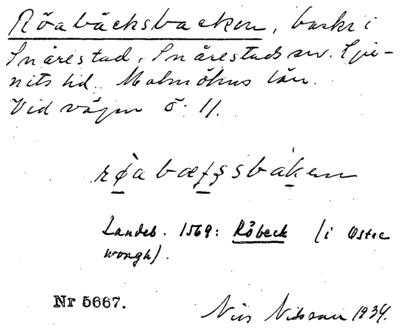 Röabäcksbacken, backe i
Snårestad, Snårestads sn. Lju-
nits hd. Malmöhus län.
Vid vägen ö. 11.
Landeb. 1569: Röbeck (i Øster
wongh).
Nr 5667.
Nils Nilsson 1934.